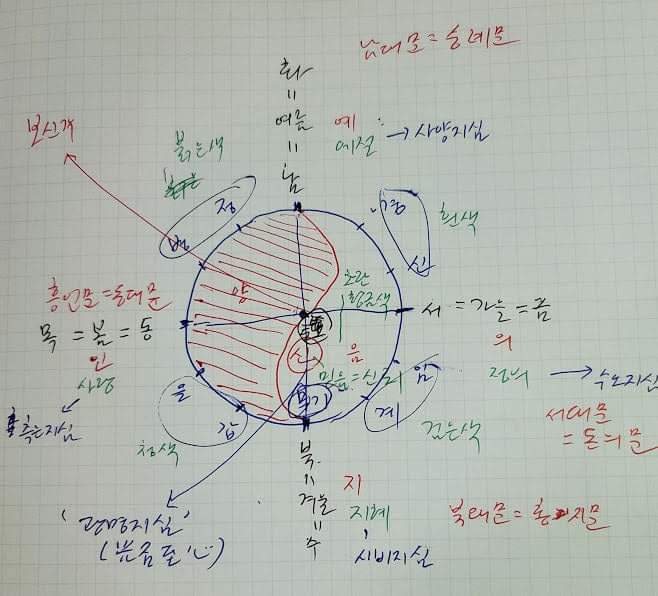 남대문 = 숭례문
화
=
여름
=
남
예
예절 → 사양지심
보신각
붉은색
병 정
경 신
흰색
흥인문 = 동대문
목 = 봄 = 동
인
사랑
측은지심
양
노란
황금색
서 = 가을 = 금
의
정의 → 수오지심
서대문
= 돈의문
신
음
믿음 = 신뢰
무기
을 갑
청색
임 계
검은색
북
=
겨울
=
수
지
지혜
시비지심
북대문 = 홍지문
'광명지심'